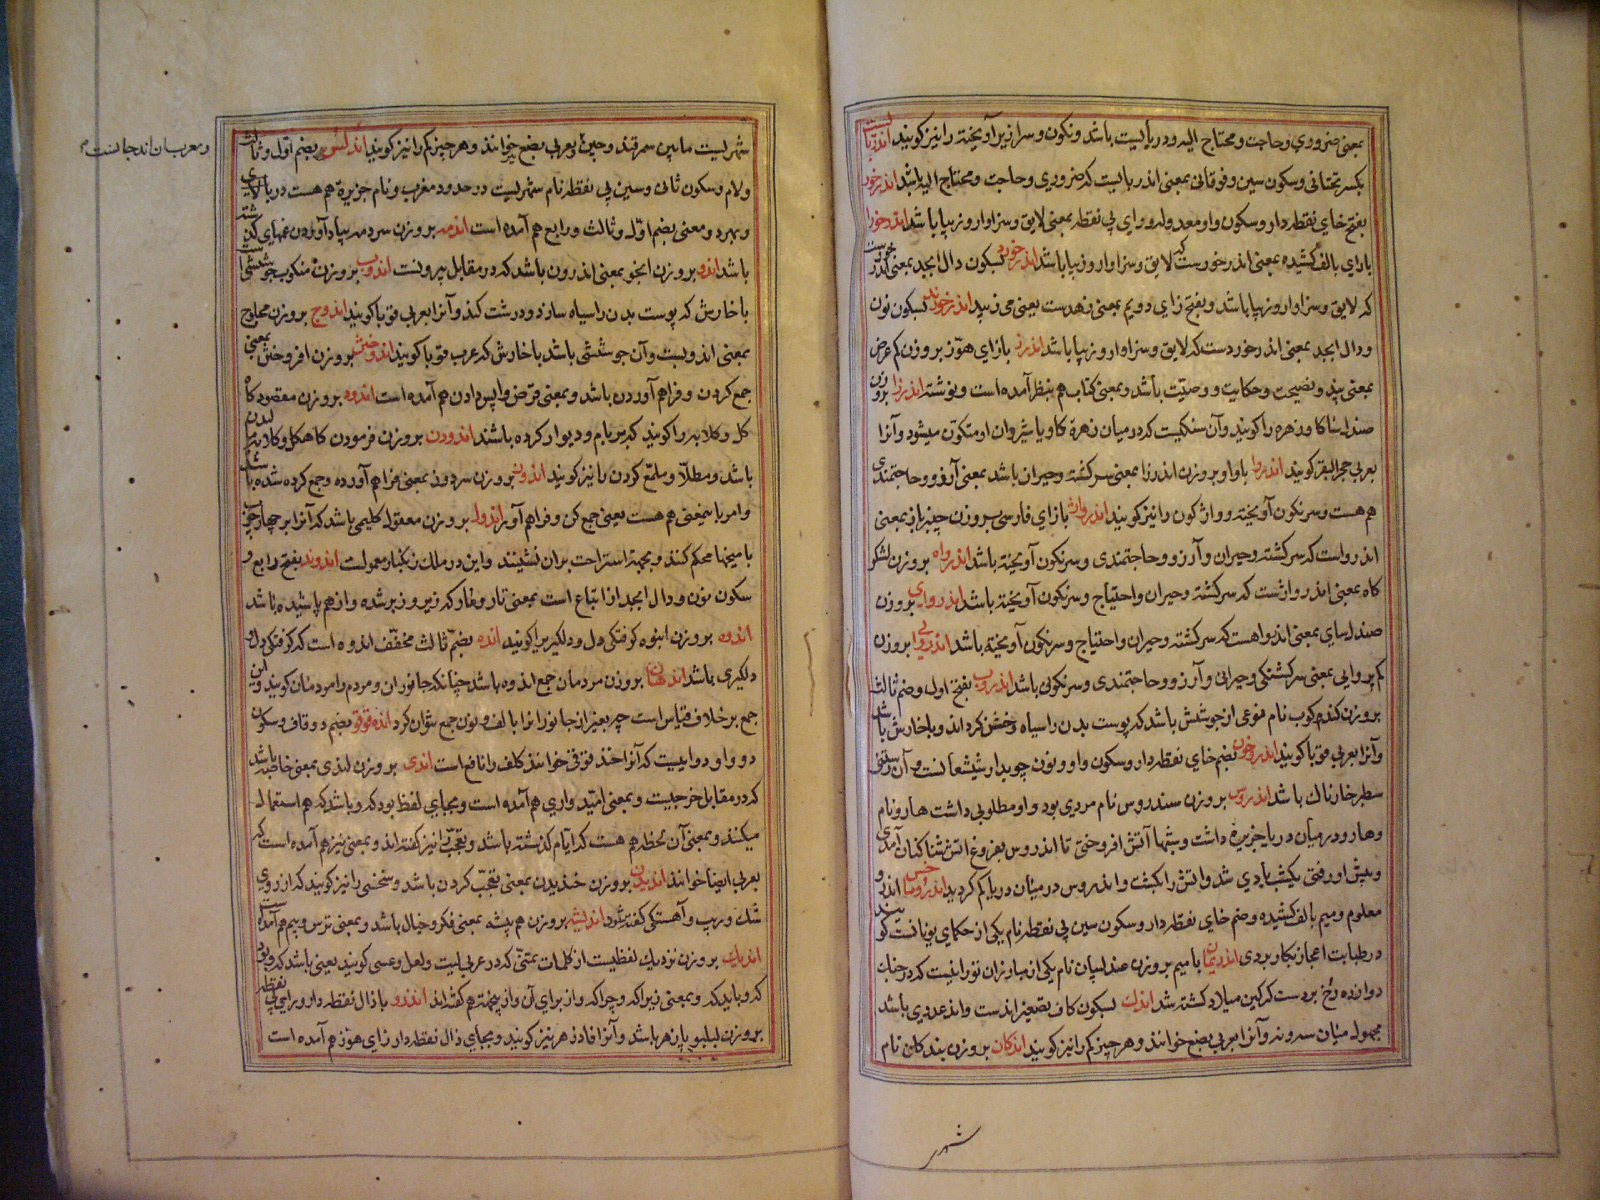 بمعنی ضروری و حاجت و محتاج الیه و دربایست باشد و نکون و سرازیر آویخته را نیز کویند اندربایست
بکسر تحتانی و سکون سین و فوقانی بمعنی اندربایست که ضروری و حاجت و محتاج الیه باشد اندرخور
بفتح خای نقطه دار و سکون واو معدوله و رای بی نقطه بمعنی لایق و سزاوار و زیبا باشد اندرخورا
بارای بالف کشیده بمعنی اندرخورست که لایق و سزاوار و زیبا باشد اندرخورد بسکون دال ابجد بمعنی اندرخورست
که لایق و سزاوار و زیبا باشد و بفتح زای دویم بمعنی زهدست یعنی می زیبد اندرخورند بسکون نون
و دال ابجد بمعنی اندرخوردست که لایق و سزاوار و زیبا باشد اندرز بازای هوز بروزن کم عرض
بمعنی پند و نصیحت و حکایت و وصیت باشد و بمعنی کتاب هم بنظر آمده است و نوشته اندرزا بروزن
صندلسا کاو زهره را کویند و آن سنکیست که در میان زهره کاو یا شیردان او متکون میشود و آنرا
بعربی حجر البقر کویند اندروا باواو بروزن اندرزا بمعنی سرکشته و حیران باشد بمعنی آرزو و حاجتمندی
هم هست و سرنکون آویخته و واژکون را نیز کویند اندرواژ بازای فارسی بروزن چیزباز بمعنی
اندرواست که سرکشته و حیران و آرزو و حاجتمندی و سرنکون آویخته باشد اندرواه بروزن لشکر
کاه بمعنی اندرواژست که سرکشته و حیران و احتیاج و سرنکون آویخته باشد اندروای بروزن
صندل سای بمعنی اندرواهست که سرکشته و حیران و احتیاج و سرنکون آویخته باشد اندروایی بروزن
کم پروایی بمعنی سرکشتکی و حیرانی و آرزو و حاجتمندی و سرنکونی باشد اندروب بفتح اول و ضم ثالث
بروزن کندم کوب نام نوعی از جوشش باشد که پوست بدن را سیاه و خشن کرداند و با خارش باشد
و آنرا بعربی قوبا کویند اندروخون بضم خای نقطه دار و سکون واو و نون چوبدار شیشعا نست و آن رستنی
سطبر خارناک باشد اندروس بروزن سندروس نام مردی بود و او مطلوبی داشت هارو نام
و هارو در میان دریا جزیره داشت و شبها آتش افروختی تا اندروس بفروغ آتش شناکنان آمدی
و پیش او رفتی یکشب بادی شد و آتش را کشت و اندروس در میان دریا کم کردید اندروماخس
معلوم و میم بالف کشیده و ضم خای نقطه دار و سکون سین بی نقطه نام یکی از حکمای یونانست کویند
در طبابت اعجاز بکار بردی اندریمان بامیم بروزن عندلیبان نام یکی از مبارزان تورانیست که در جنک
دوازده رخ بر دست کرکین میلاد کشته شد اندک بسکون کاف تصغیر اندست و اند عددی باشد
مجهول میان سه و نه و آنرا بعربی بضع خوانند و هر چیز کم را نیز کویند اندکان بروزن بندکان نام
شهری
شهریست مابین سمرقند و چین و بعربی بضع خوانند و هر چیز کم را نیز کویند اندلس بضم اول و ثالث
و معرب آن اندجانست
ولام و سکون ثانی و سین بی نقطه نام شهریست در حدود مغرب و نام جزیرهٔ هم هست در بالای
و بهر دو معنی بضم اول و ثالث و رابع هم آمده است اندمه بروزن سرده بیاد آوردن غمهای کذشته
باشد اندو بروزن انجو بمعنی اندرون باشد که در مقابل بیرونست اندوب بروزن منکوب جوششی است
باخارش که پوست بدن را سیاه سازد و درشت کند و آنرا بعربی قوبا کویند اندوج بروزن محلوج
بمعنی اندوبست و آن جوششی باشد باخارش که عرب قوبا کویند اندوختن بروزن افروختن بمعنی
جمع کردن و فراهم آوردن باشد و بمعنی قرض واپس دادن هم آمده است اندود بروزن مقصود کاه
کل و کلابه را کویند که بر بام و دیوار کرده باشند اندودن بروزن فرمودن کاهکل و کلابه
باشد و مطلا و ملمع کردن را نیز کویند اندوز بروزن سردوز بمعنی فراهم آورده و جمع کرده شده باشد
و امر باینمعنی هم هست یعنی جمع کن و فراهم آور اندول بروزن معقول کلیمی باشد که آنرا بر چهار چوب
بامیخها محکم کنند و بجهة استراحت بران نشینند و این در ملک زنکبار معمولست اندوند بفتح رابع و
سکون نون و دال ابجد از اتباع است بمعنی تار و مار که زیر و زبر شده و از هم پاشیده باشد
اندوه بروزن انبوه کرفتکی دل و دلکیری کویند انده بضم ثالث مخفف اندوه است که کرفتکی دل و
دلکیری باشد اندهان بروزن مردمان جمع انده باشد چنانکه جانوران و مردم را مردمان کویند و این
جمع بر خلاف قیاس است چه بغیر از جانور را بالف و نون جمع نتوان کرد انده قوقو بضم دو قاف و سکون
دو واو دواییست که آنرا حندقوقی خوانند کلف را نافع است اندی بروزن لندی بمعنی خاصه باشد
که در مقابل خرجیست و بمعنی امیدواری هم آمده است و بجای لفظ بود که و باشد که هم استعمال
میکنند و بمعنی آن لحظه هم هست که ایام کذشته باشد و تعجب را نیز کفته اند و بمعنی نیز هم آمده است که
بعربی ایضا خوانند اندیدن بروزن خندیدن بمعنی تعجب کردن باشد و سخنی را نیز کویند که از روی
شک و ریب و آهستکی کفته شود اندیشه بروزن هم پیشه بمعنی فکر و خیال باشد و بمعنی ترس و بیم هم آمده است
اندیک بروزن نزدیک لفظیست از کلمات تمنی که در عربی لیت و لعل و عسی کویند یعنی باشد که و بود
که و باید که و بمعنی زیراکه و چراکه و از برای آن و از بهر هم کفته اند انذرو باذال نقطه دار و رای بی نقطه
بروزن لبلبو پازهر باشد و آنرا فادزهر نیز کویند و بجای ذال نقطه دار زای هوز هم آمده است